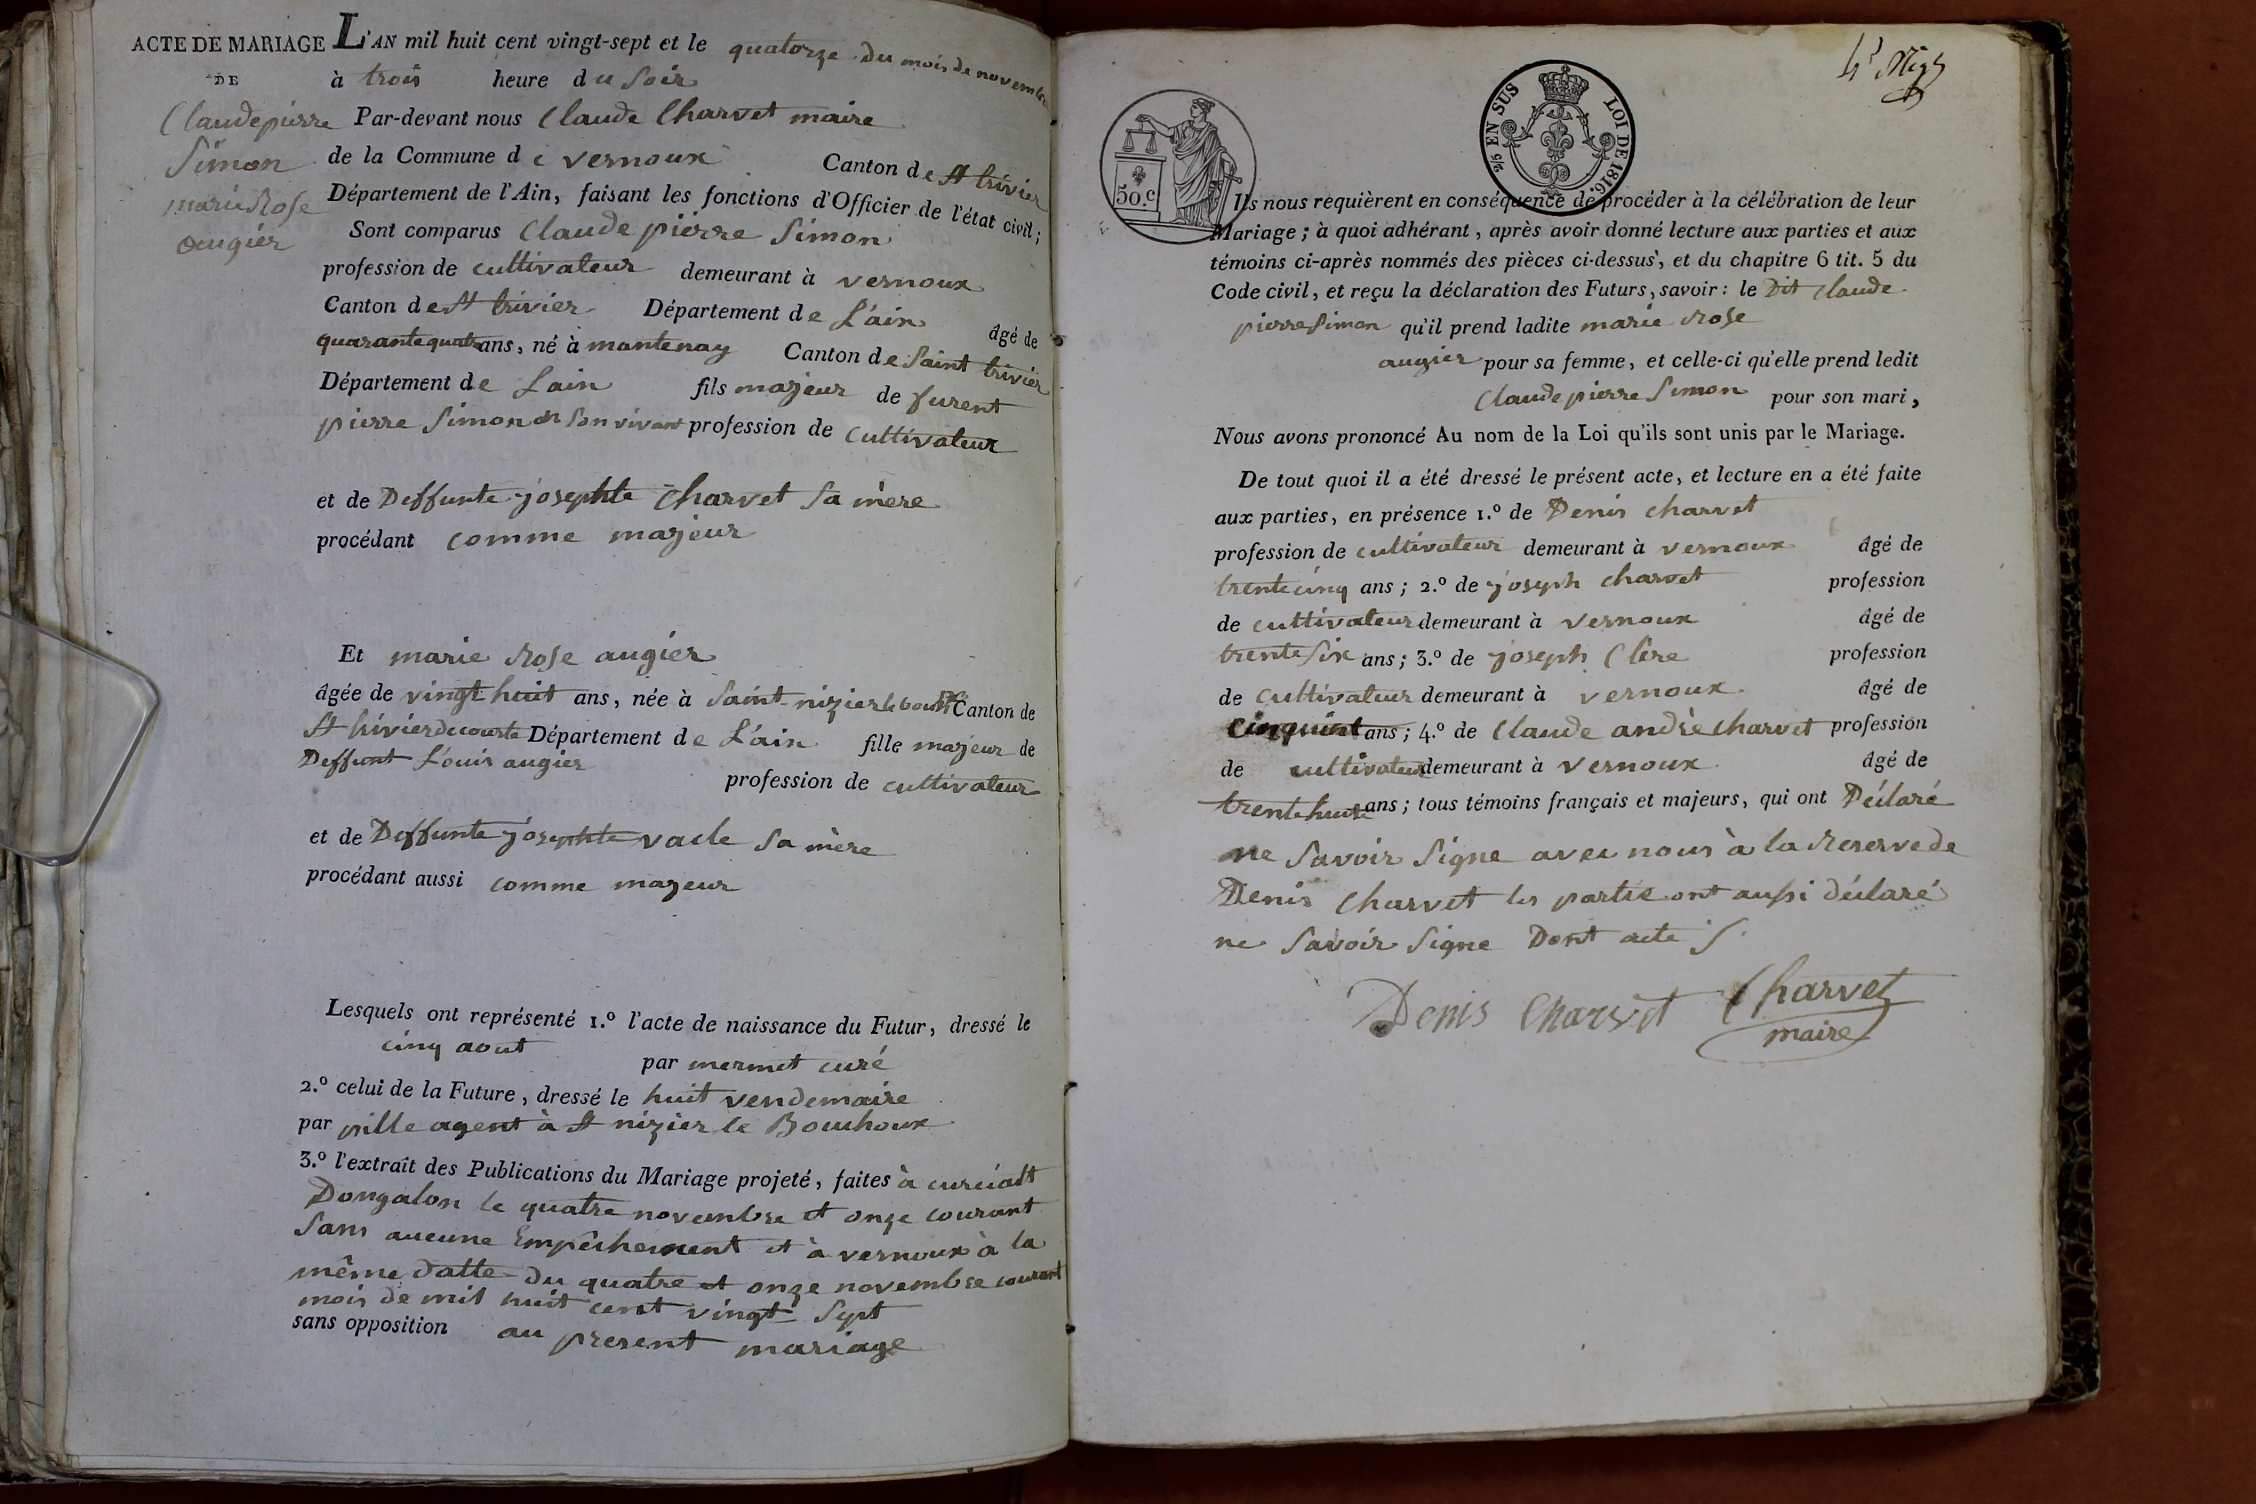 ACTE DE MARIAGE
DE
Claude pierre
Simon
marie Rose
augier
L'AN mil huit cent vingt-sept et le quatorze du mois de novembre
à trois heure du Soir
Par-devant nous Claude Charvet maire
de la Commune de vernoux Canton de St trivier
Département de l'Ain, faisant les fonctions d'Officier de l'état civil;
Sont comparus Claude pierre Simon
profession de cultivateur demeurant à vernoux
Canton de St trivier Département de L'ain âgé de
quarante quatre ans, né à mantenay Canton de Saint trivier
Département de Lain fils majeur de furent
pierre Simon de Son vivant profession de cultivateur
et de Deffunte josephte Charvet Sa mère
procédant comme majeur
Et marie Rose augier
âgée de vingt huit ans, née à Saint-nizier le Canton de
St trivier de courte Département de L'ain fille majeur de
Deffunt Louis augier
profession de cultivateur
et de Deffunte josephte vacle Sa mère
procédant aussi comme majeur
Lesquels ont représenté 1.º l'acte de naissance du Futur, dressé le
cinq aout par mermet curé
2.º celui de la Future, dressé le huit vendemaire
par pille agent à St nizier le Bouchoux
3.º l'extrait des Publications du Mariage projeté, faites à curciadt
Dongalon le quatre novembre et onze courant
Sans aucune Empêchement et à vernoux à la
même datte du quatre et onze novembre courant
mois de mil huit cent vingt Sept
sans opposition au present mariage
50.C
EN SUS LOI DE 1816.
Ils nous requièrent en conséquence de procéder à la célébration de leur
Mariage; à quoi adhérant, après avoir donné lecture aux parties et aux
témoins ci-après nommés des pièces ci-dessus, et du chapitre 6 tit. 5 du
Code civil, et reçu la déclaration des Futurs, savoir: le Dit Claude
pierre Simon qu'il prend ladite marie Rose
augier pour sa femme, et celle-ci qu'elle prend ledit
Claude pierre Simon pour son mari,
Nous avons prononcé Au nom de la Loi qu'ils sont unis par le Mariage.
De tout quoi il a été dressé le présent acte, et lecture en a été faite
aux parties, en présence 1.º de Denis Charvet
profession de cultivateur demeurant à vernoux âgé de
trente cinq ans; 2.º de joseph Charvet profession
de cultivateur demeurant à vernoux âgé de
trente Six ans; 3.º de joseph Clere profession
de cultivateur demeurant à vernoux âgé de
ans; 4.º de Claude andrè Charvet profession
de cultivateur demeurant à vernoux âgé de
trente huit ans; tous témoins français et majeurs, qui ont Déclaré
ne Savoir Signe avec nous à la Reserve de
Denis Charvet les partie ont aussi déclaré
ne Savoir Signe Dont acte
Denis Charvet Charvet
maire